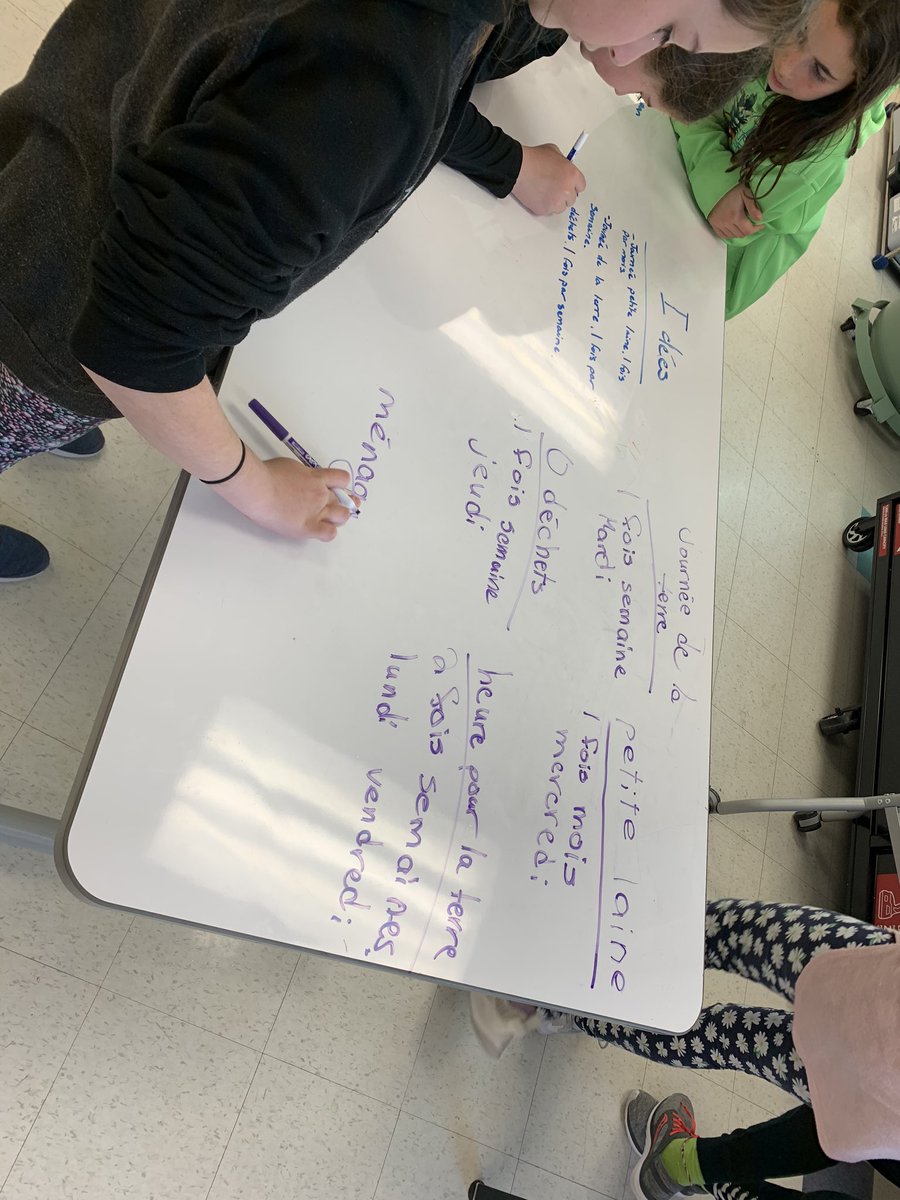 Idées
- Journée petite laine. 1 fois
par mois
- Journée de la terre. 1 fois par
semaine.
déchets. 1 fois par semaine.
Journée de la
terre
1 fois semaine
Mardi
petite laine
1 fois mois
mercredi
0 déchets
1 fois semaine
jeudi
heure pour la terre
2 fois semaines
lundi vendredi
ménag